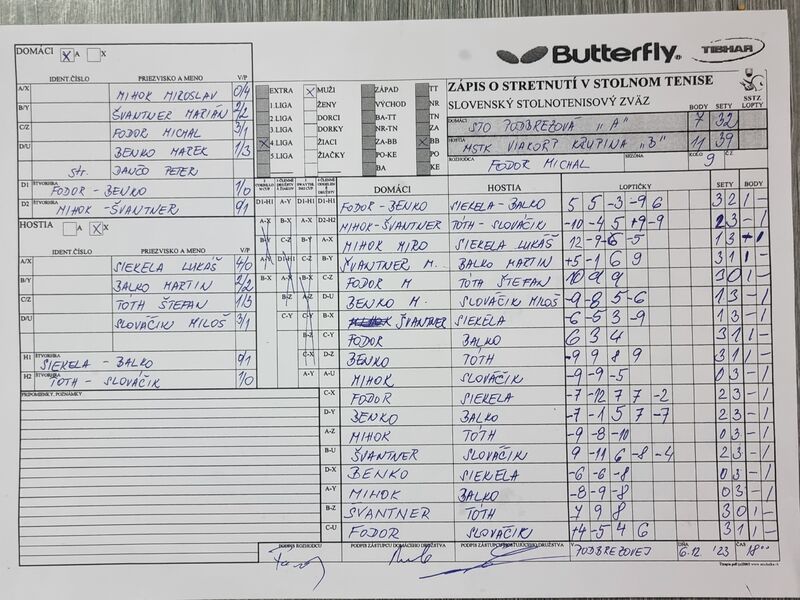 DOMÁCI X A X
Butterfly TIBHAR
IDENT.ČÍSLO PRIEZVISKO A MENO V/P
A/X MIHOK MIROSLAV 0/4
B/Y ŠVANTNER MARIÁN 2/2
C/Z FODOR MICHAL 3/1
D/U BENKO MAREK 1/3
str. JANČO PETER
D1 ŠTVORHRA FODOR - BENKO 1/0
D2 MIHOK - ŠVANTNER 0/1
HOSTIA A X X
IDENT.ČÍSLO PRIEZVISKO A MENO V/P
A/X SIEKELA LUKÁŠ 4/0
B/Y BALKO MARTIN 2/2
C/Z TÓTH ŠTEFAN 1/3
D/U SLOVÁČIK MILOŠ 3/1
H1 ŠTVORHRA SIEKELA - BALKO 0/1
H2 ŠTVORHRA TÓTH - SLOVÁČIK 1/0
PRIPOMIENKY, POZNÁMKY
EXTRA X MUŽI ZÁPAD TT
1.LIGA ŽENY VÝCHOD NR
2.LIGA DORCI BA-TT TN
3.LIGA DORKY NR-TN ZA
X 4.LIGA ŽIACI ZA-BB X BB
5.LIGA ŽIAČKY PO-KE PO
BA KE
ZÁPIS O STRETNUTÍ V STOLNOM TENISE
SLOVENSKÝ STOLNOTENISOVÝ ZVÄZ BODY SETY LOPTY
SSTZ
DOMÁCI STO PODBREZOVÁ "A" 7 32
HOSTIA MSTK VIAKORP KRUPINA "B" 11 39
ROZHODCA FODOR MICHAL SEZÓNA KOLO 9 Č.Z.
DOMÁCI HOSTIA LOPTIČKY SETY BODY
D1-H1 A-Y D1-H1 FODOR - BENKO SIEKELA - BALKO 5 5 -3 -9 6 3 2 1 -
A-X B-X D2-H2 MIHOK - ŠVANTNER TÓTH - SLOVÁČIK -10 -4 5 9 -9 2 3 - 1
B-Y C-Z A-X MIHOK MIRO SIEKELA LUKÁŠ 12 -9 -6 -5 1 3 - 1
A-Y D1-H1 B-Y ŠVANTNER M. BALKO MARTIN -5 -1 6 9 3 1 1 -
B-X A-X C-Z FODOR M TÓTH ŠTEFAN 10 9 9 3 0 1 -
B-Z A-Z D-U BENKO M. SLOVÁČIK MILOŠ -9 -8 5 -6 1 3 - 1
C-Y C-Y B-X ŠVANTNER SIEKELA -6 -5 3 -9 1 3 - 1
B-Z C-Y FODOR BALKO 6 3 4 3 1 1 -
C-X D-Z BENKO TÓTH -9 9 8 9 3 1 1 -
A-Y A-U MIHOK SLOVÁČIK -9 -9 -5 0 3 - 1
C-X FODOR SIEKELA -7 -12 7 7 -2 2 3 - 1
D-Y BENKO BALKO -7 -1 5 7 -7 2 3 - 1
A-Z MIHOK TÓTH -9 -8 -10 0 3 - 1
B-U ŠVANTNER SLOVÁČIK 9 -11 6 -8 -4 2 3 - 1
D-X BENKO SIEKELA -6 -6 -8 0 3 - 1
A-Y MIHOK BALKO -8 -9 -8 0 3 - 1
B-Z ŠVANTNER TÓTH 7 9 8 3 0 1 -
C-U FODOR SLOVÁČIK 4 -5 4 6 3 1 1 -
PODPIS ROZHODCU PODPIS ZÁSTUPCU DOMÁCEHO DRUŽSTVA PODPIS ZÁSTUPCU HOSŤUJÚCEHO DRUŽSTVA V PODBREZOVEJ DŇA 6.12.'23 ČAS 18:00